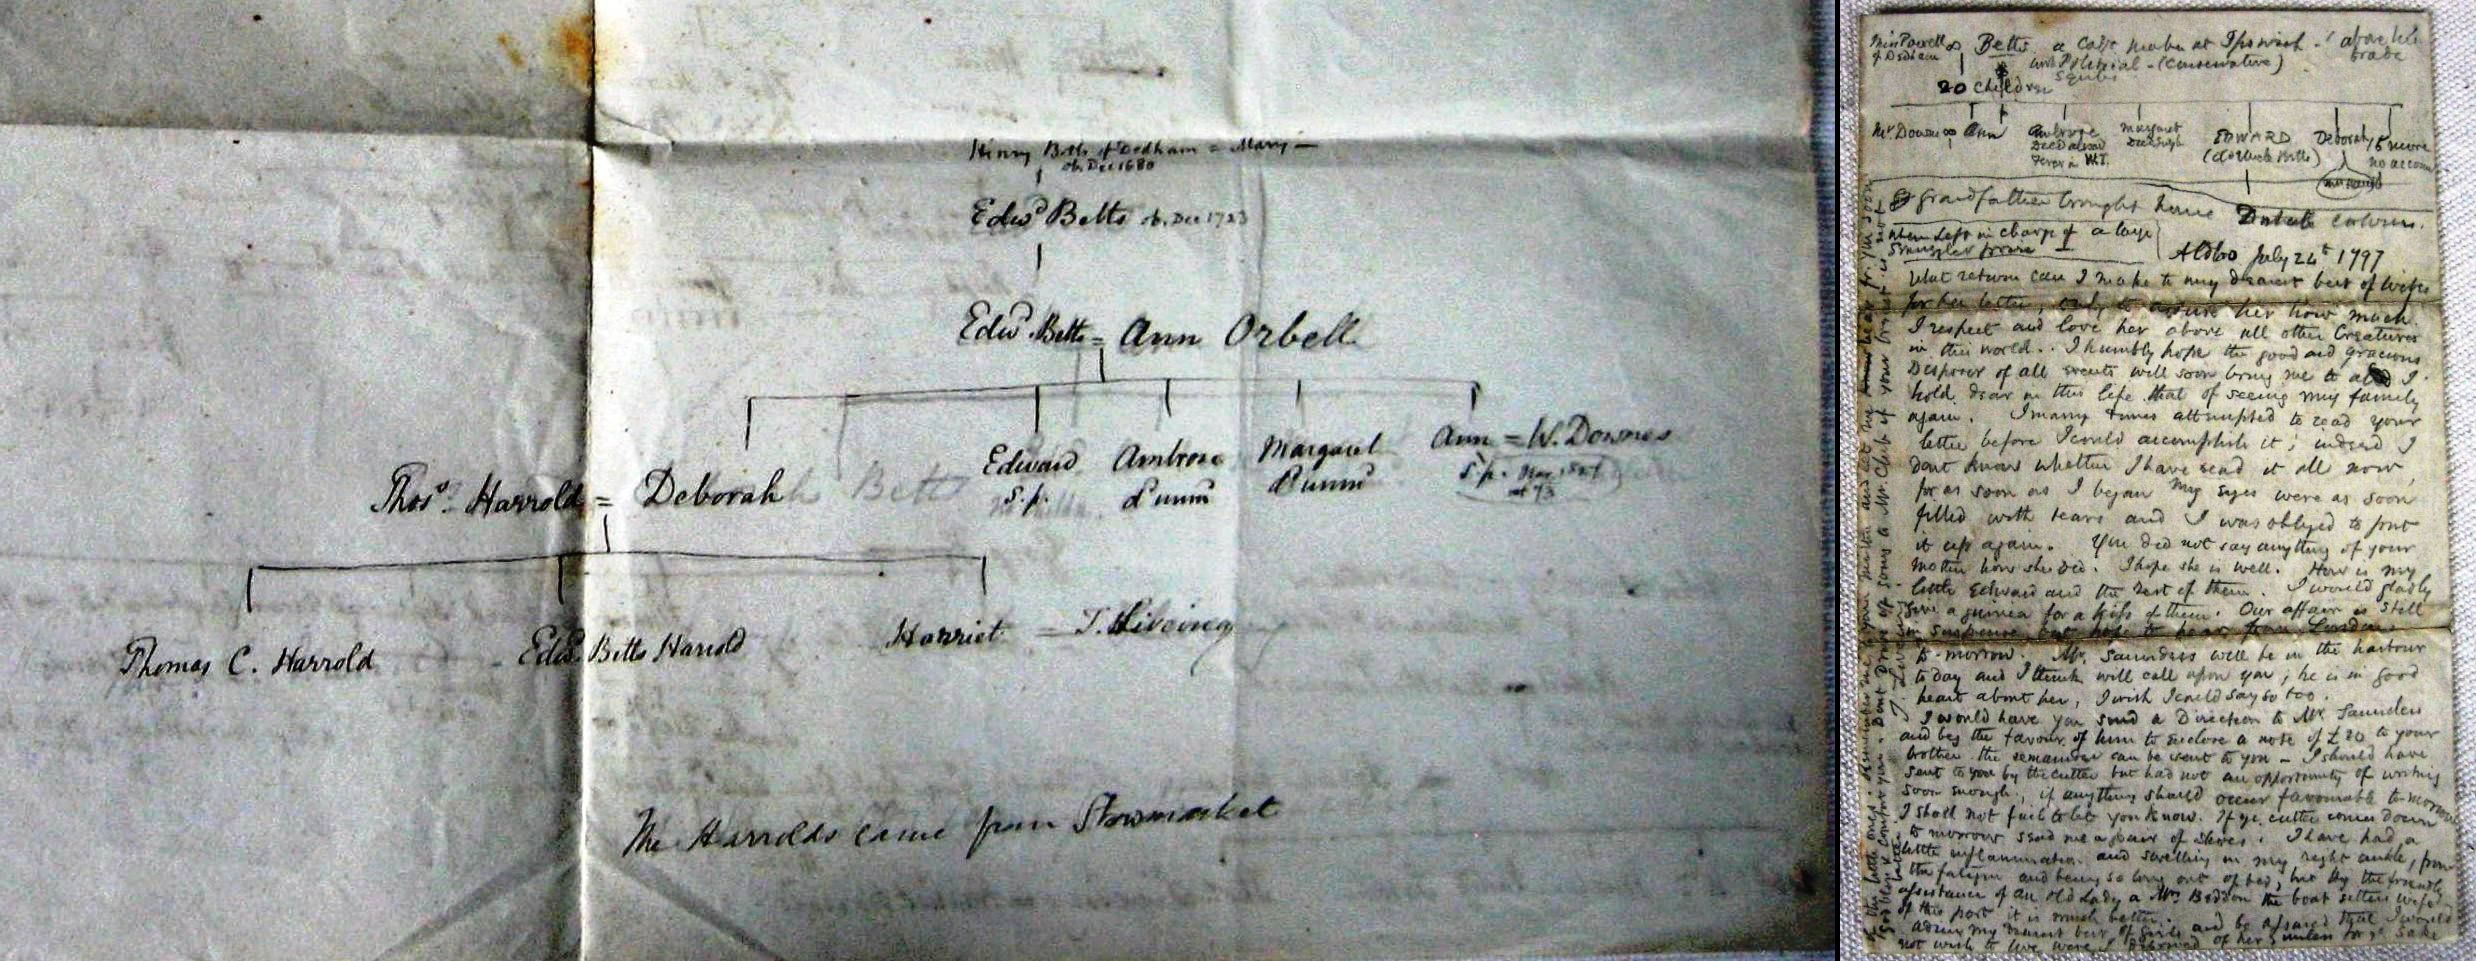 Henry Betts of Dedham = Mary —
ob. Dec 1680
Edwd Betts ob. Dec 1723
Edwd Betts = Ann Orbell
Thos. Harrold = Deborah
Edward s.p.
Ambrose d. unm
Margaret d unm
Ann = W. Downes
s.p.
Thomas C. Harrold
Edwd. Betts Harrold
Harriet = T. Liveing
The Harrolds came from Stowmarket
Miss Powell of Dedham ∞ Betts a at Ipswich - (above his trade
with Political - (Conservative)
Squibs
20 Children
Mr Downes ∞ Ann
Ambrose Died Fever in W.I.
Margaret Died
EDWARD
Deborah
15 more no account
Grandfather brought home Dutch colours.
when left in charge of a large
Smuggler prize
Aldbro July 24th 1797
What return can I make to my dearest best of wifes
for her letter, only to assure her how much
I respect and love her above all other Creatures
in this world.. I humbly hope the good and gracious
Disposer of all events will soon bring me to all I
hold dear in this life that of seeing my family
again. I many times attempted to read your
letter before I could accomplish it; indeed I
dont know whether I have read it all now,
for as soon as I began my eyes were as soon
filled with tears and I was obliged to put
it up again. You did not say anything of your
mother how she did. I hope she is well. How is my
little Edward and the rest of them. I would gladly
give a guinea for a kiss of them. Our affair is still
in suspense but hope to hear from London
to-morrow. Mr. Saunders will be in the harbour
to day and I think will call upon you; he is in good
heart about her, I wish I could say so too.
I would have you send a Direction to Mr. Saunders
and beg the favour of him to enclose a note of £20 to your
brother the remainder can be sent to you - I should have
sent to you by the cutter but had not an opportunity of writing
soon enough; if anything should occur favourable to-morrow
I shall not fail to let you know. If ye cutter comes down
to morrow send me a pair of shoes. I have had a
little inflammation and swelling in my right ankle, from
the fatigue and being so long out of bed, but by the friendly
assistance of an old Lady a Mrs Beddon the boat setters wife
of this port it is much better.
adieu my dearest best of girls and be assured that I would
not wish to live were I deprived of her